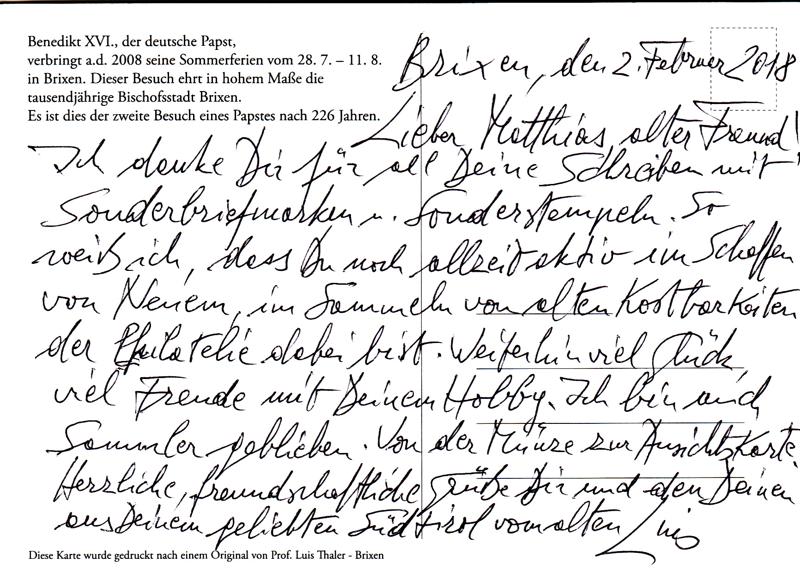 Benedikt XVI., der deutsche Papst,
verbringt a.d. 2008 seine Sommerferien vom 28. 7. – 11. 8.
in Brixen. Dieser Besuch ehrt in hohem Maße die
tausendjährige Bischofsstadt Brixen.
Es ist dies der zweite Besuch eines Papstes nach 226 Jahren.
Brixen, den 2. Februar 2018
Lieber Matthias, alter Freund!
Ich danke Dir für all Deine Schreiben mit
Sonderbriefmarken u. Sonderstempeln. So
weiß ich, dass Du noch allzeit aktiv im Schaffen
von Neuem, im Sammeln von alten Kostbarkeiten
der Philatelie dabei bist. Weiterhin viel Glück,
viel Freude mit Deinem Hobby. Ich bin auch
Sammler geblieben. Von der Münze zur Ansichtskarte.
Herzliche, freundschaftliche Grüße Dir und den Deinen
aus Deinem geliebten Südtirol vom alten Luis
Diese Karte wurde gedruckt nach einem Original von Prof. Luis Thaler - Brixen